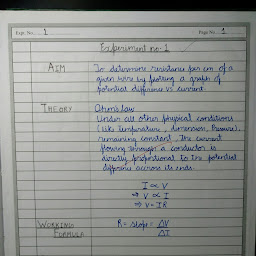 Expt. No. 1 Page No. 1
Experiment no-1
AIM To determine resistance per cm of a
given wire by plotting a graph of
potential difference vs current.
THEORY Ohm's law
Under all other physical conditions
(like temperature, dimension, pressure)
remaining constant, the current
flowing through a conductor is
directly proportional to the potential
difference across its ends.
I ∝ V
⇒ V ∝ I
⇒ V = IR
WORKING R = slope = ΔV
FORMULA ΔI